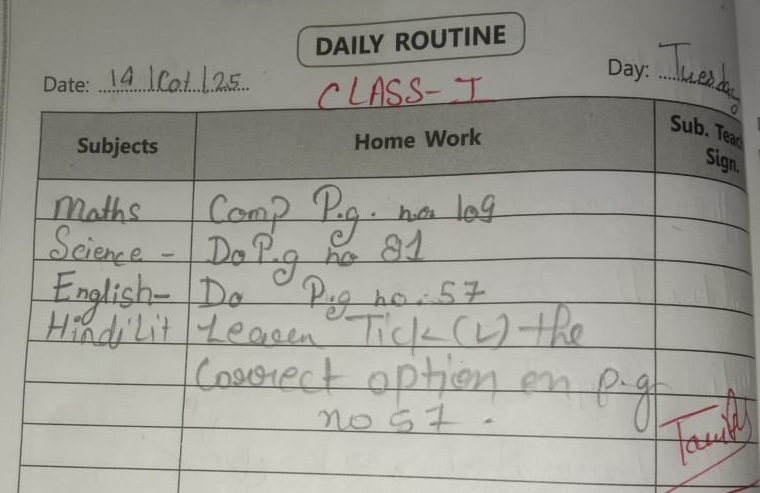 DAILY ROUTINE
Date: 14 | Oct | 25 Day: Tuesday
CLASS- I
Subjects Home Work Sub. Teac Sign.
Maths Comp P.g. no 109
Science - Do P.g no 81
English- Do P.g no. 57
Hindi Lit Learn Tick (✓) the
Correct option on p.g
no 57.